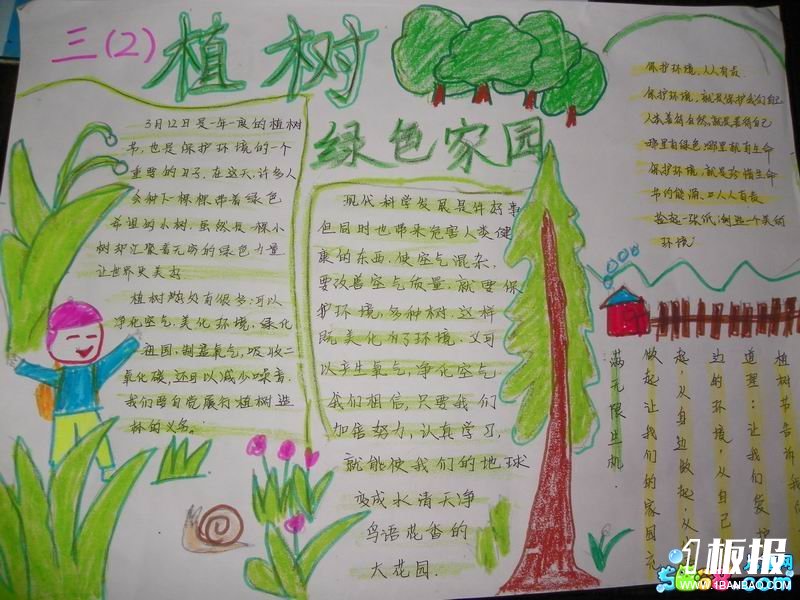 三(2)
植树
绿色家园
3月12日是一年一度的植树
节,也是保护环境的一个
重要的日子,在这天,许多人
会种下一棵棵带着绿色
希望的小树,虽然是一棵小
树却汇聚着无穷的绿色力量
让世界更美好
植树好处有很多:可以
净化空气,美化环境,绿化
祖国,制造氧气,吸收二
氧化碳,还可以减少噪音.
我们要自觉履行植树造
林的义务.
现代科学发展是件好事
但同时也带来危害人类健
康的东西,使空气混杂,
要改善空气质量,就要保
护环境,多种树.这样
既美化了环境,又可
以产生氧气,净化空气
我们相信,只要我们
加倍努力,认真学习,
就能使我们的地球
变成水清天净
鸟语花香的
大花园.
保护环境,人人有责
保护环境,就是保护我们自己
人类善待自然,就是善待自己
哪里有绿色,哪里就有生命
保护环境,就是珍惜生命
节约能源,人人有责
捡起一张纸,创造一个美的
环境.
植树节告诉我
道理:让我们爱护
边的环境,从自己
起,从身边做起.从
做起让我们的家园充
满无限生机.
1板报
WWW.1BANBAO.COM